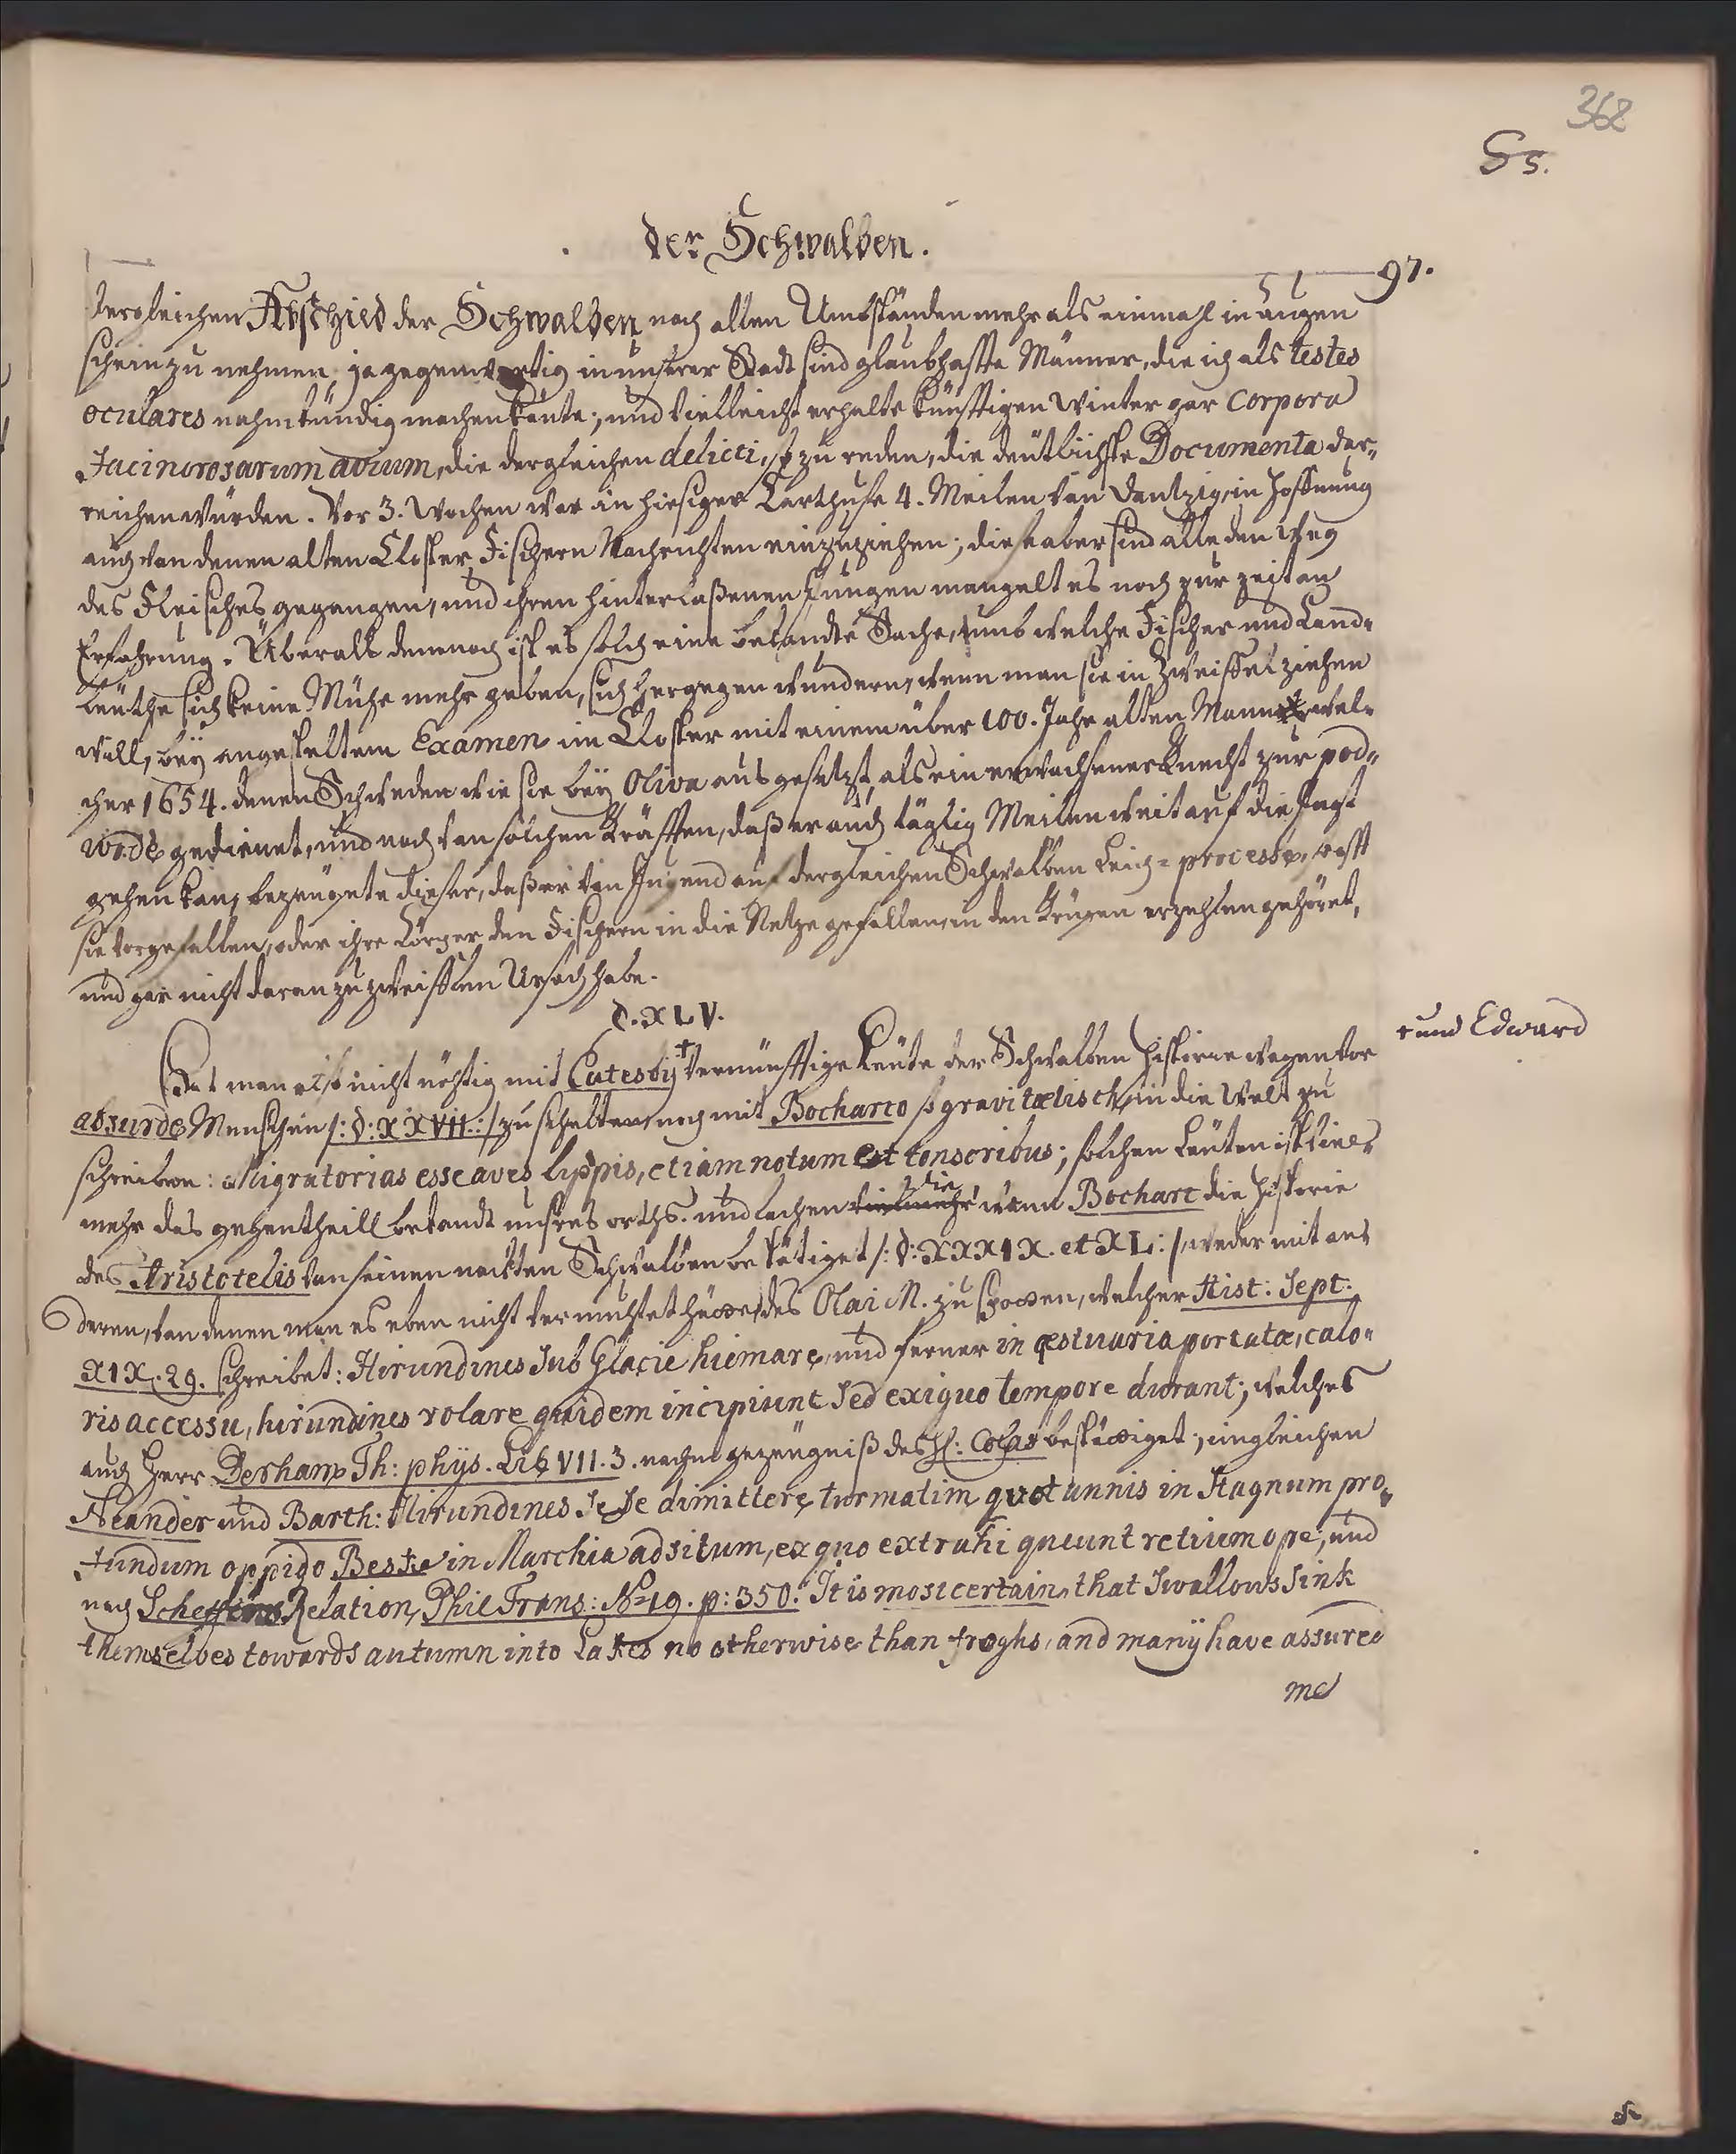 368
Ss.
der Schwalben.
97.
dergleichen Abschied der Schwalben nach allen Umbständen mehr als einmahl in augen
schein zu nehmen, ja gegenwertig in unserer Stadt sind glaubhaffte Männer, die ich als testes
oculares nahmkündig machen könte; und vielleicht erhalte künfftigen Winter gar corpora
facinorosarum avium, die dergleichen delicti, so zu reden, die deütlichste Documenta dar„
reichen würden. Vor 3. Wochen war in hiesiger Carthuse 4. Meilen von Dantzig, in Hoffnung
auch von denen alten Closter Fischern Nachrichten einzuziehen; diese aber sind alle den Weg
des Fleisches gegangen, und ihren hinterlaßenen Jungen mangelt es noch zur zeit an
Erfahrung. Überall dennoch ist es solch eine bekandte Sache, umb welche Fischer und Land„
Leüthe sich keine Mühe mehr geben, sich hergegen wundern, wenn man sie in Zweiffel ziehen
will, beÿ angesteltem Examen im Closter mit einem über 100. Jahr alten Mann wel„
cher 1654. denen Schweden wie sie beÿ Oliva ausgesetzt, als ein erwachsener Knecht zur pod„
wode gedienet, und noch von solchen Kräfften, daß er auch täglig Meilen weit auf die Jagt
gehen kan, bezeugete dieser, daß er von Jugend auf dergleichen Schwalben Leich=processe, so offt
sie vorgefallen, oder ihre Cörper den Fischern in die Netze gefallen, in den Krügen erzehlen gehöret,
und gar nicht daran zu zweifflen Ursach habe.
§. XLV.
Hat man also nicht nöhtig mit Catesbÿ † vernünfftige Leüte der Schwalben Historie wegen vor
† und Edward
absurde Menschen /: §: XXVII. :/ zu schelten, noch mit Bocharto so gravitætisch in die Welt zu
schreiben: Migratorias esse aves lippis, etiam notum est tonsoribus; solchen Leüten ist viel„
mehr das gegentheill bekandt unsres orths. und lachen vielmehr die wenn Bochart die Historie
des Aristotelis von seinen nackten Schwalben bestätiget /: §: XXXIX. et XL: / weder mit an„
deren, von denen man es eben nicht vermuhtet hätte, des Olai M. zu spotten, welcher Hist: Sept:
XIX. 29. schreibet: Hirundines sub Glacie hiemare, und ferner in æstuaria portatæ, calo„
ris accessu, hirundines volare quidem incipiunt sed exiguo tempore durant; welches
auch Herr Derham Th: phÿs. Lib VII. 3. nach gezeügniß des H: Colas bestättiget; ingleichen
Neander und Barth: Hirundines se se dimittere turmatim quotannis in Stagnum pro„
fundum oppido Beske in Marchia adsitum, ex quo extrahi queunt retium ope; und
nach Relation, Phil Trans: No 19. p: 350. It is most certain, that swallows sink
themselves towards autumn into Lakes no otherwise than froghs, and manÿ have assured
me